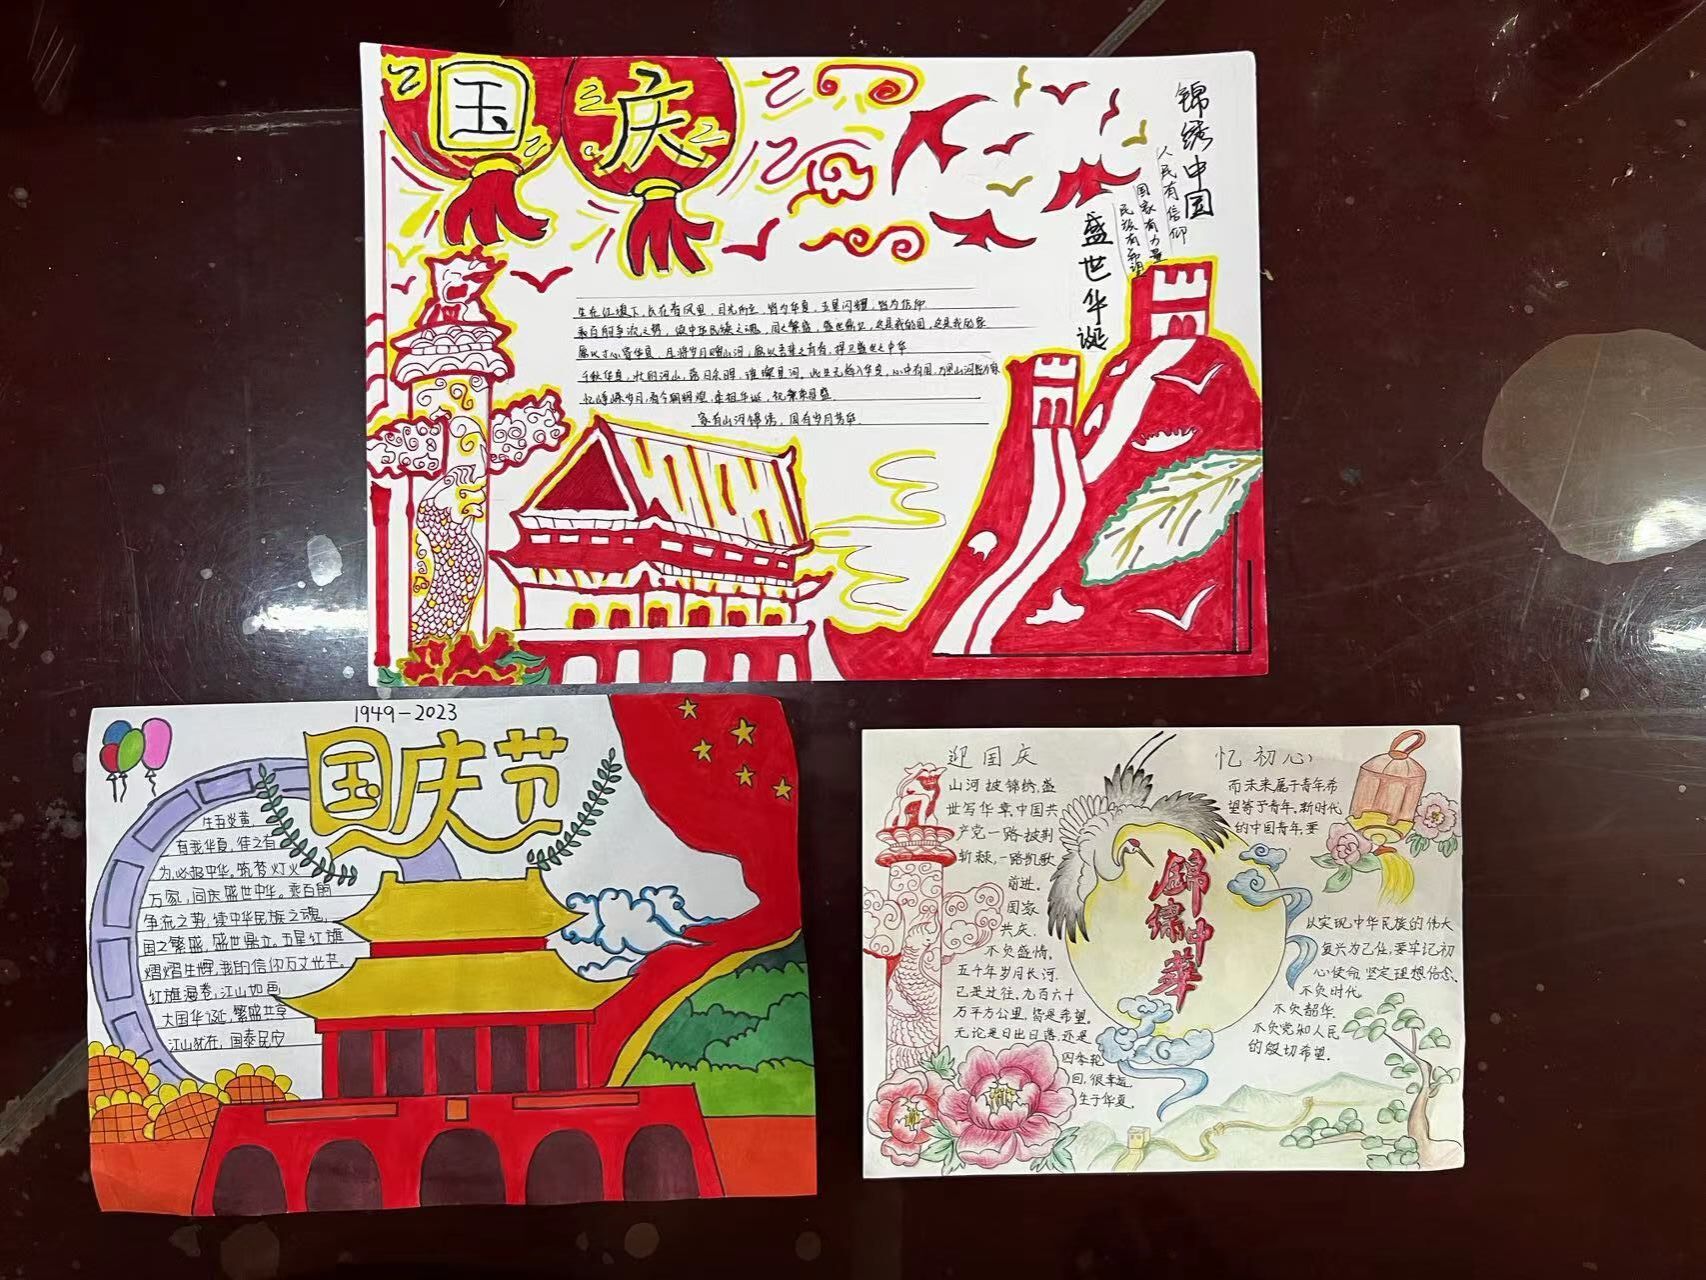 国庆
锦绣中国
人民有信仰
国家有力量
民族有希望
盛世华诞
生在红旗下,长在春风里,目光所至,皆为华夏,五星闪耀,皆为信仰
乘百舸争流之势,续中华民族之魂,国之繁盛,盛世鼎立,这是我的国,这是我的家
愿以寸心寄华夏,且将岁月赠山河,愿以吾辈之青春,捍卫盛世之中华
千秋华夏,壮丽河山,落日余晖,璀璨星河
忆峥嵘岁月,看今朝辉煌
家有山河锦绣,国有岁月芳华.
1949-2023
国庆节
生吾炎黄,
有我华夏,隹之有
为,必报中华,筑梦灯火
万家,同庆盛世中华。乘百舸
争流之势,续中华民族之魂,
国之繁盛,盛世鼎立,五星红旗
熠熠生辉,我的信仰万丈光芒。
红旗漫卷,江山如画
大国华诞,繁盛共享
江山犹在,国泰民安
迎国庆
山河披锦绣,盛
世写华章,中国共
产党一路披荆
斩棘,一路凯歌
前进.
国家
共庆.
不负盛情.
五千年岁月长河.
已是过往,九百六十
万平方公里,皆是希望.
无论是日出日落,还是
四季轮
回,很幸运,
生于华夏.
锦绣中华
忆初心
而未来属于青年希
望等于青年,新时代
的中国青年,要
以实现中华民族的伟大
复兴为己任,要牢记初
心使命,坚定理想信念.
不负时代
不负韶华.
不负党和人民
的殷切希望.